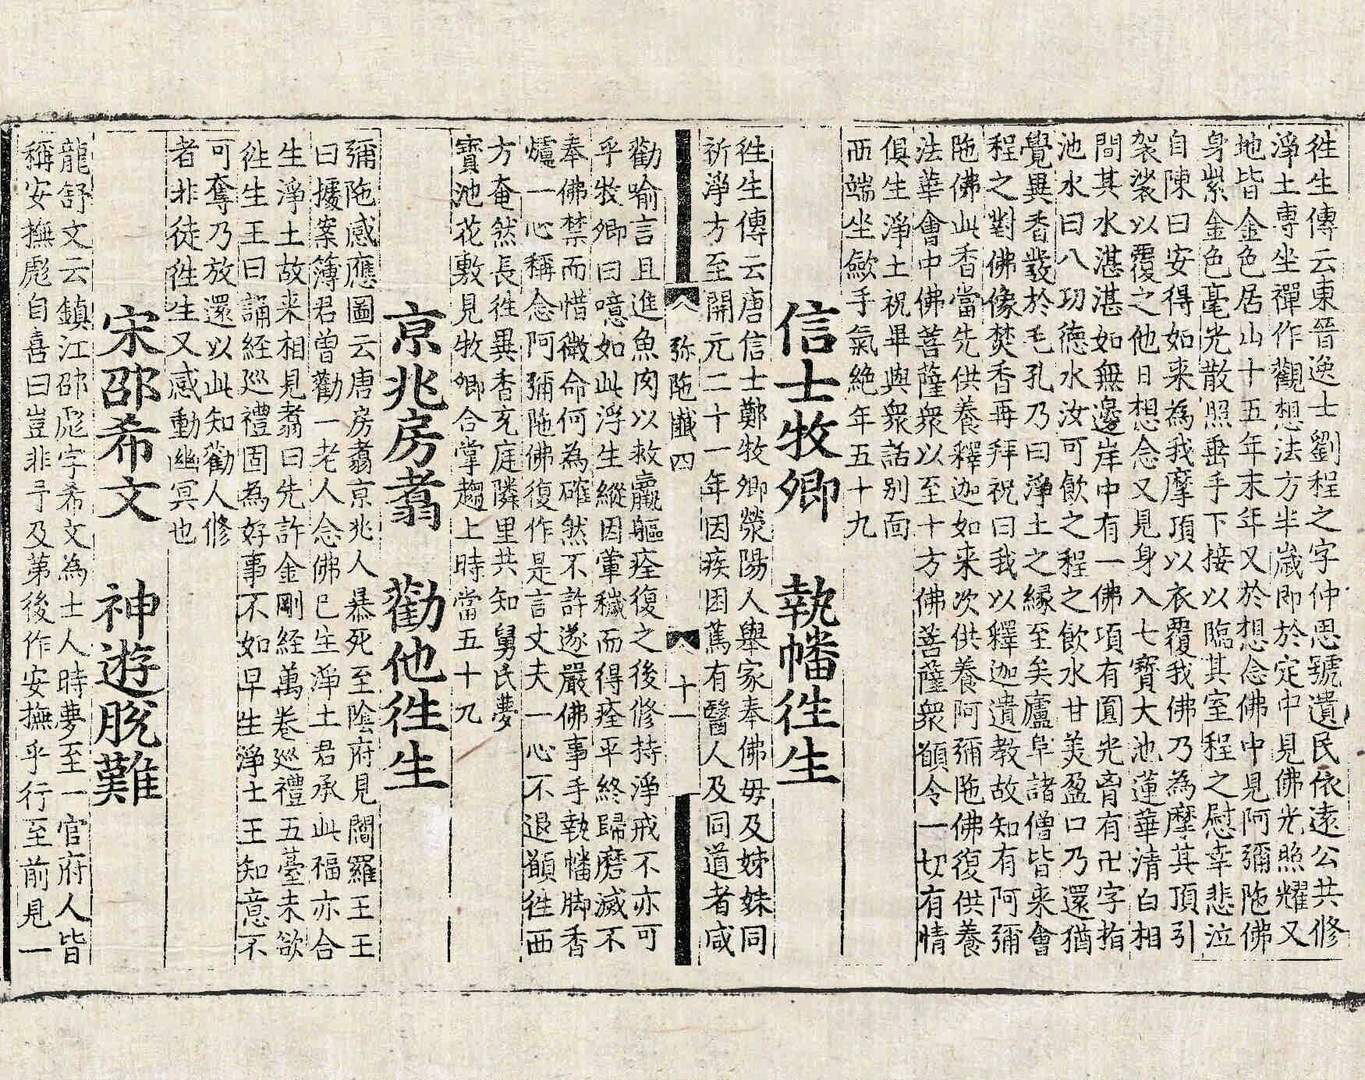 徃生傳云東晉逸士劉程之字仲思號遺民依遠公共修
淨土專坐禪作觀想法方半歲即於定中見佛光照耀又
地皆金色居山十五年末年又於想念佛中見阿彌陁佛
身紫金色毫光散照垂手下接以臨其室程之慰幸悲泣
自陳曰安得如来為我摩頂以衣覆我佛乃為摩其頂引
袈裟以覆之他日想念又見身入七寶大池蓮華清白相
間其水湛湛如無邊岸中有一佛項有圓光胷有卍字指
池水曰八功德水汝可飲之程之飲水甘美盈口乃還猶
覺異香發於毛孔乃曰淨土之緣至矣廬阜諸僧皆来會
程之對佛像焚香再拜祝曰我以釋迦遺教故知有阿彌
陁佛此香當先供養釋迦如来次供養阿彌陁佛復供養
法華會中佛菩薩衆以至十方佛菩薩衆願令一切有情
俱生淨土祝畢與衆話别面
西端坐歛手氣絶年五十九
信士牧卿 執幡徃生
徃生傳云唐信士鄭牧卿滎陽人舉家奉佛毋及姊妹同
祈淨方至開元二十一年因疾困篤有醫人及同道者咸
弥陁䜟四 十一
勸喻言且進魚肉以救羸軀痊復之後修持淨戒不亦可
乎牧卿曰噫如此浮生縱因葷穢而得痊平終歸磨滅不
奉佛禁而惜微命何為確然不許遂嚴佛事手執幡脚香
爐一心稱念阿彌陁佛復作是言丈夫一心不退願徃西
方奄然長徃異香充庭隣里共知舅氏夢
寳池花敷見牧卿合掌趨上時當五十九
京兆房翥 勸他徃生
彌陁感應圖云唐房翥京兆人暴死至陰府見閻羅王王
曰據案簿君曾勸一老人念佛已生淨土君承此福亦合
生淨土故来相見翥曰先許金剛経萬卷巡禮五臺未欲
徃生王曰誦経巡禮固為好事不如早生淨土王知意不
可奪乃放還以此知勸人修
者非徒徃生又感動幽冥也
宋邵希文 神遊脫難
龍舒文云鎮江邵彪字希文為士人時夢至一官府人皆
稱安撫彪自喜曰豈非予及第後作安撫乎行至前見一